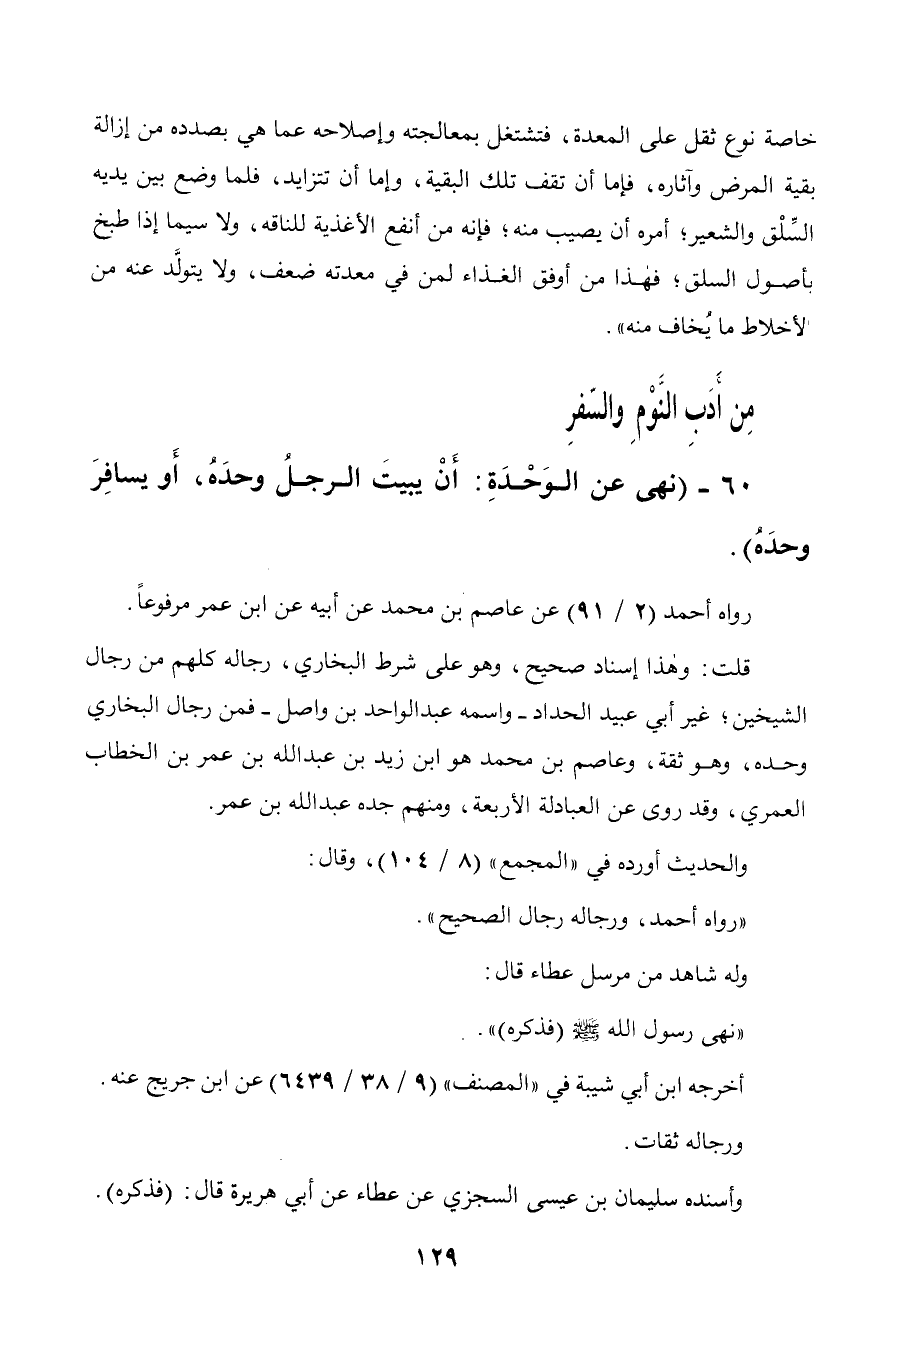 خاصة نوع ثقل على المعدة، فتشتغل بمعالجته وإصلاحه عما هي بصدده من إزالة
بقية المرض وآثاره، فإما أن تقف تلك البقية، وإما أن تتزايد، فلما وضع بين يديه
السِّلْق والشعير؛ أمره أن يصيب منه؛ فإنه من أنفع الأغذية للناقه، ولا سيما إذا طبخ
بأصول السلق؛ فهٰذا من أوفق الغذاء لمن في معدته ضعف، ولا يتولَّد عنه من
الأخلاط ما يُخاف منه».
مِن أَدَبِ النَّوْمِ والسَّفرِ
٦٠ - (نهى عن الوَحْدَةِ: أَنْ يبيتَ الرجلُ وحدَهُ، أَو يسافِرَ
وحدَهُ).
رواه أحمد (٢ / ٩١) عن عاصم بن محمد عن أبيه عن ابن عمر مرفوعاً.
قلت: وهٰذا إسناد صحيح، وهو على شرط البخاري، رجاله كلهم من رجال
الشيخين؛ غير أبي عبيد الحداد - واسمه عبدالواحد بن واصل - فمن رجال البخاري
وحده، وهو ثقة، وعاصم بن محمد هو ابن زيد بن عبدالله بن عمر بن الخطاب
العمري، وقد روى عن العبادلة الأربعة، ومنهم جده عبدالله بن عمر.
والحديث أورده في «المجمع» (٨ / ١٠٤)، وقال:
«رواه أحمد، ورجاله رجال الصحيح».
وله شاهد من مرسل عطاء قال:
«نهى رسول الله ﷺ (فذكره)».
أخرجه ابن أبي شيبة في «المصنف» (٩ / ٣٨ / ٦٤٣٩) عن ابن جريج عنه.
ورجاله ثقات.
وأسنده سليمان بن عيسى السجزي عن عطاء عن أبي هريرة قال: (فذكره).
١٢٩